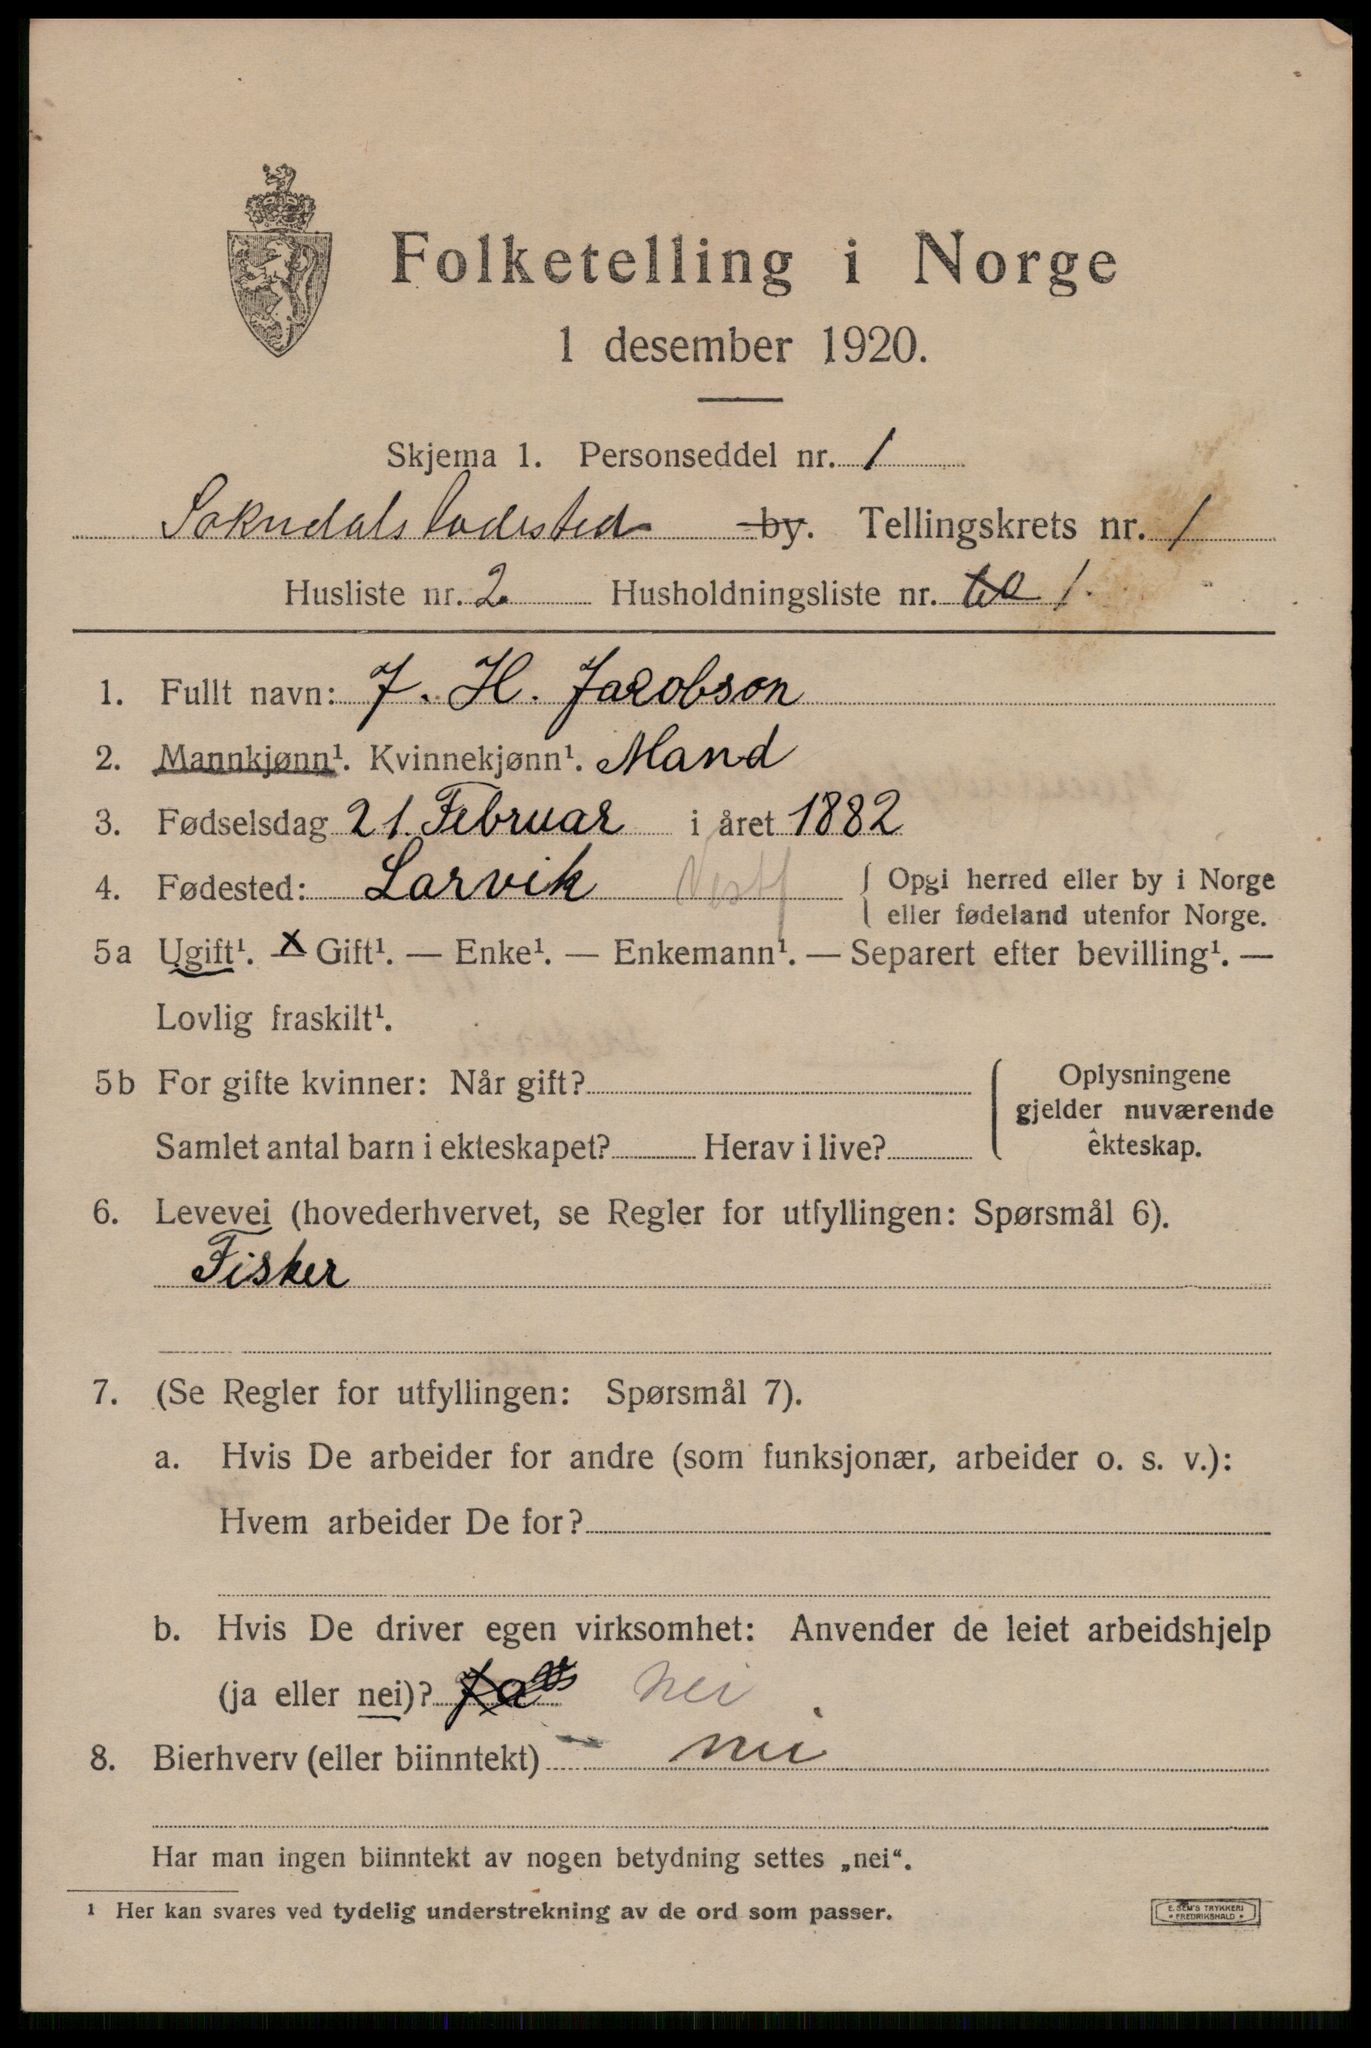 Folketelling i Norge
1 desember 1920.
Skjema 1. Personseddel nr. 1
Sokndals ladested by. Tellingskrets nr. 1
Husliste nr. 2. Husholdningsliste nr. to 1.
1. Fullt navn: J. H. Jacobson
2. Mannkjønn¹. Kvinnekjønn¹. Mand
3. Fødselsdag 21. Februar i året 1882
4. Fødested: Larvik Vestf { Opgi herred eller by i Norge
eller fødeland utenfor Norge.
5a Ugift¹. x Gift¹. — Enke¹. — Enkemann¹. — Separert efter bevilling¹. —
Lovlig fraskilt¹.
5b For gifte kvinner: Når gift?
Samlet antal barn i ekteskapet? Herav i live?
Oplysningene
gjelder nuværende
ekteskap.
6. Levevei (hovederhvervet, se Regler for utfyllingen: Spørsmål 6).
Fisker
7. (Se Regler for utfyllingen: Spørsmål 7).
a. Hvis De arbeider for andre (som funksjonær, arbeider o. s. v.):
Hvem arbeider De for?
b. Hvis De driver egen virksomhet: Anvender de leiet arbeidshjelp
(ja eller nei)? Ja nei
8. Bierhverv (eller biinntekt) nei
Har man ingen biinntekt av nogen betydning settes „nei“.
¹ Her kan svares ved tydelig understrekning av de ord som passer.
E. SEM'S TRYKKERI
* FREDRIKSHALD *